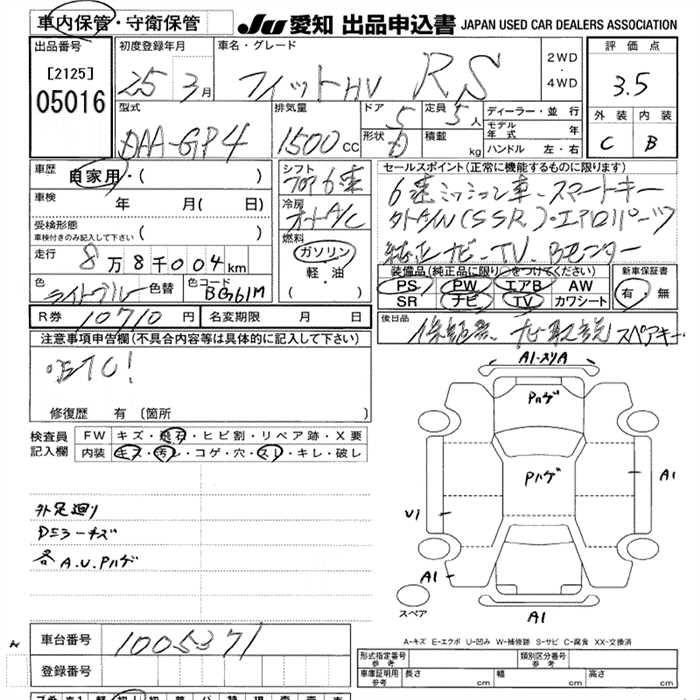 車内保管・守衛保管
JU 愛知 出品申込書 JAPAN USED CAR DEALERS ASSOCIATION
出品番号
[2125]
05016
初度登録年月
25 3月
車名・グレード
フィットHV RS
2WD
・
4WD
評価点
3.5
外装 内装
C B
型式
DAA-GP4
排気量
1500cc
ドア
5
定員
5人
形状
積載
kg
ディーラー・並行
モデル年式 年
ハンドル 左・右
車歴
自家用・( )
車検
年 月( 日)
受検形態
車検付きのみ記入して下さい ( )
走行
8万8千004km
色
ライトブルー
色替
色コード
BG61M
シフト
フロア6速
冷房
オートA/C
燃料
ガソリン
軽・油
( )
セールスポイント(正常に機能するものに限ります)
6速ミッション車、スマートキー
(SSR)・エアロパーツ
純正ナビ・TV、Bモニター
装備品(純正品に限り○をつけてください)
PS PW エアB AW
SR ナビ TV カワシート
新車保証書
有・無
R券
10710円
名変期限 月 日
後日品
保、記、ナビ取説 スペアキー
注意事項申告欄(不具合内容等は具体的に記入して下さい)
・ETC!
修復歴 有(箇所 )
検査員
記入欄
FW キズ・飛石・ヒビ割・リペア跡・X要
内装 キズ・汚レ・コゲ・穴・スレ・キレ・破レ
外足廻り
各A.U.Pハゲ
A1-スリA
Pハゲ
Pハゲ
A1
U1
A1
A1
スペア
A1
A-キズ E-エクボ U-凹み W-補修跡 S-サビ C-腐食 XX-交換済
車台番号
1005371
登録番号
形式指定番号
参考
類別区分番号
参考
車庫証明用
参考
長さ cm 幅 cm 高さ cm